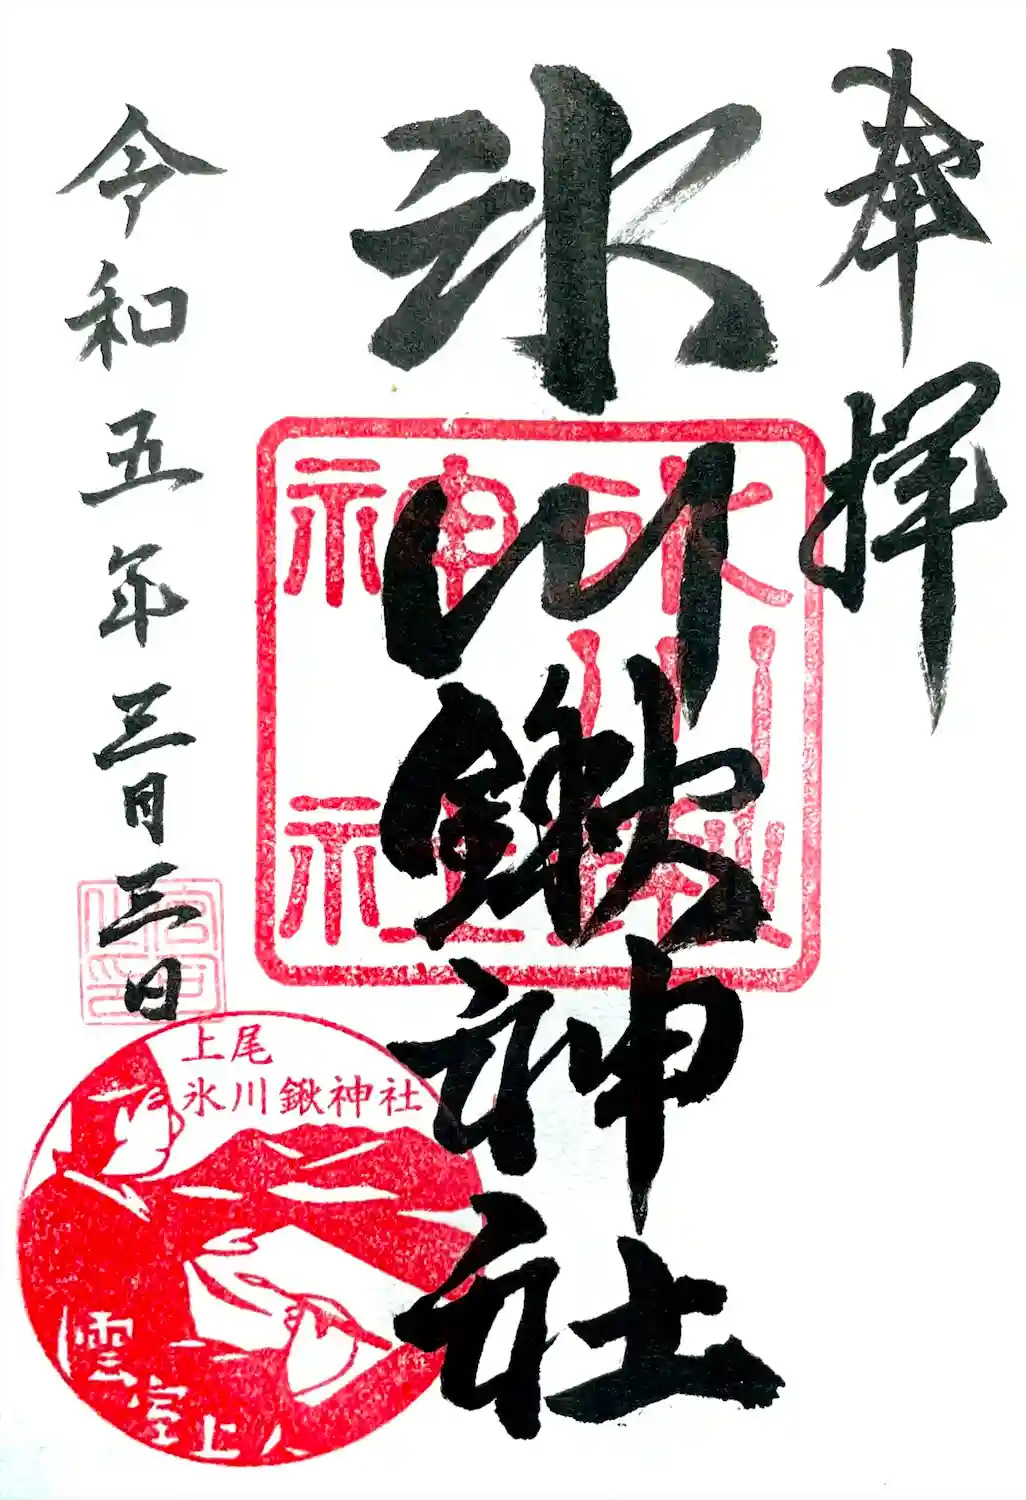 奉拝
氷川鍬神社
令和五年三月三日
氷川鍬神社
宮司之印
上尾
氷川鍬神社
雲室上人